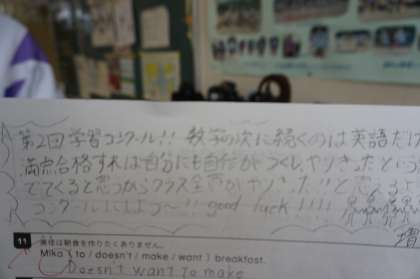 第2回学習コンクール!! 数学の次に続くのは英語だけ
満点合格すれば自分にも自信がつくし、やりきったという
でてくると思うからクラス全員がやりきった!!と思える
コンクールにしよう〜!! good luck!!!!
11 美佳は朝食を作りたくありません。
Mika ( to / doesn't / make / want ) breakfast.
Doesn't want to make